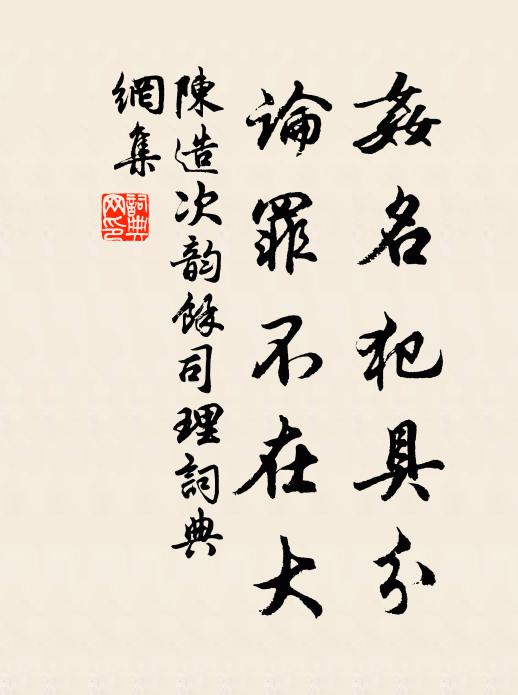 姦名犯具分
論罪不在大
陳造次韵餘司理詞典
網集
詞典
网印